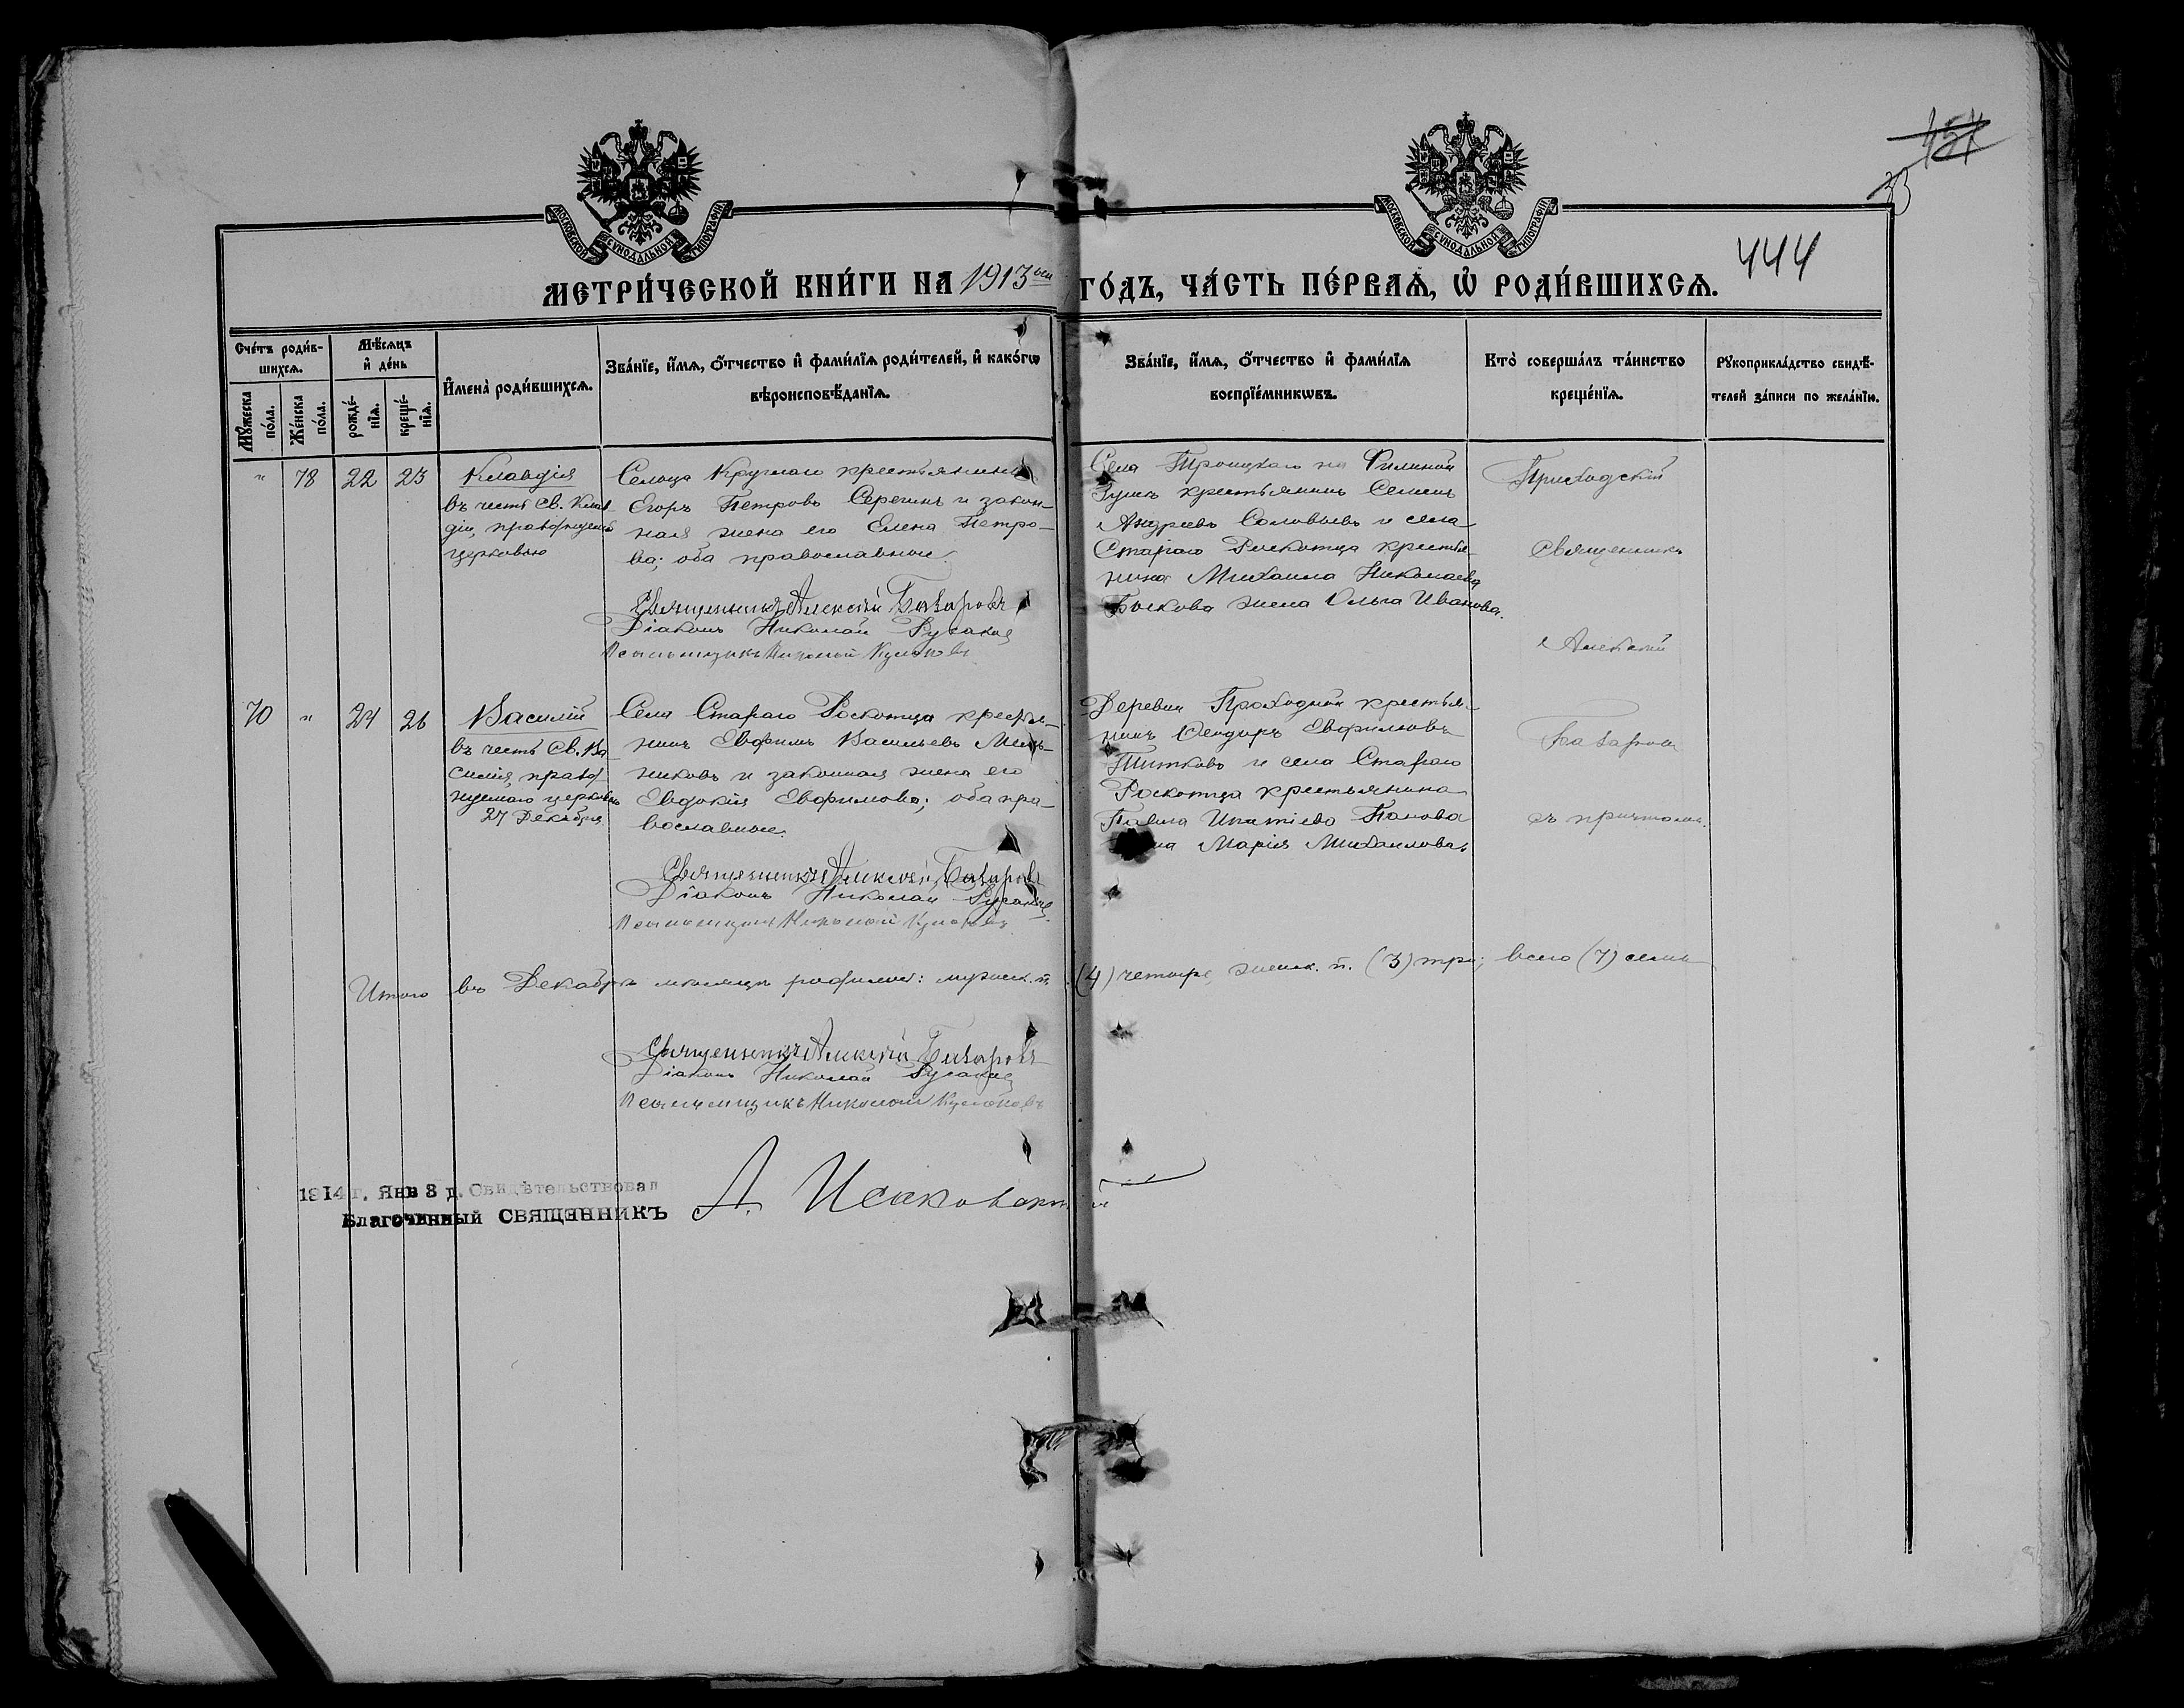 151
33
444
МОСКОВСКОЙ СѴНОДАЛЬНОЙ ТИПОГРАФІИ
МОСКОВСКОЙ СѴНОДАЛЬНОЙ ТИПОГРАФІИ
МЕТРИ́ЧЕСКОЙ КНИ́ГИ НА 1913 ый ГО́ДЪ, ЧА́СТЬ ПЕ́РВАѦ, Ѽ РОДИ́ВШИХСѦ.
Сче́тъ роди́в-
шихсѧ.
Мꙋ́жеска по́ла.
Же́нска по́ла.
Мѣ́сѧцъ
и҆ де́нь
рожде́-нїѧ.
креще́-нїѧ.
И҆мена̀ роди́вшихсѧ.
Зва́нїе, и҆́мѧ, ѻ҆́тчество и҆ фами́лїѧ роди́телей, и҆ како́гѡ
вѣроисповѣ́данїѧ.
Зва́нїе, и҆́мѧ, ѻ҆́тчество и҆ фами́лїѧ
воспрїе́мникѡвъ.
Кто̀ соверша́лъ та́инство
креще́нїѧ.
Рꙋкоприкла́дство свидѣ́-
телей за́писи по жела́нїю.
" 78 22 23
Клавдія
въ честь св. Клав
діи, празднуемой
церковью
Сельца Круглаго крестьянинъ
Егоръ Петровъ Серегинъ и закон-
ная жена его Елена Петро-
ва; оба православные.
Священникъ Алексѣй Базаровъ
Діаконъ Николай Русаковъ
Псаломщикъ Николай
Села Троицкаго на Филиной
Зушѣ крестьянинъ Семенъ
Андреевъ Соловьевъ и села
Стараго Роскотца крестья-
нина Михаила Николаева
Быкова жена Ольга Иванова.
Приходскій
Священникъ
Алексѣй
Базаровъ
съ причтомъ.
70 " 24 26
Василій
въ честь св. Ва
силія, празд-
нуемаго церковью
27 Декабря.
Села Стараго Роскотца крестья-
нинъ Евфимъ Васильевъ Мель-
никовъ и законная жена его
Евдокія Евфимова; оба пра-
вославные.
Священникъ Алексѣй Базаровъ
Діаконъ Николай Русаковъ
Псаломщикъ Николай
Деревни Проходной крестья-
нинъ Ѳеодоръ Евфимовъ
Титковъ и села Стараго
Роскотца крестьянина
Павла Ипатіева Попова
жена Марія Михаилова.
Итого въ Декабрѣ мѣсяцѣ родилось: мужск. п. (4) четыре, женск. п. (3) три; всего (7) семь
Священникъ Алексѣй Базаровъ
Діаконъ Николай Русаковъ
Псаломщикъ Николай
1914 г. Янв 8 д. Свидѣтельствовал
Благочинный СВЯЩЕННИКЪ